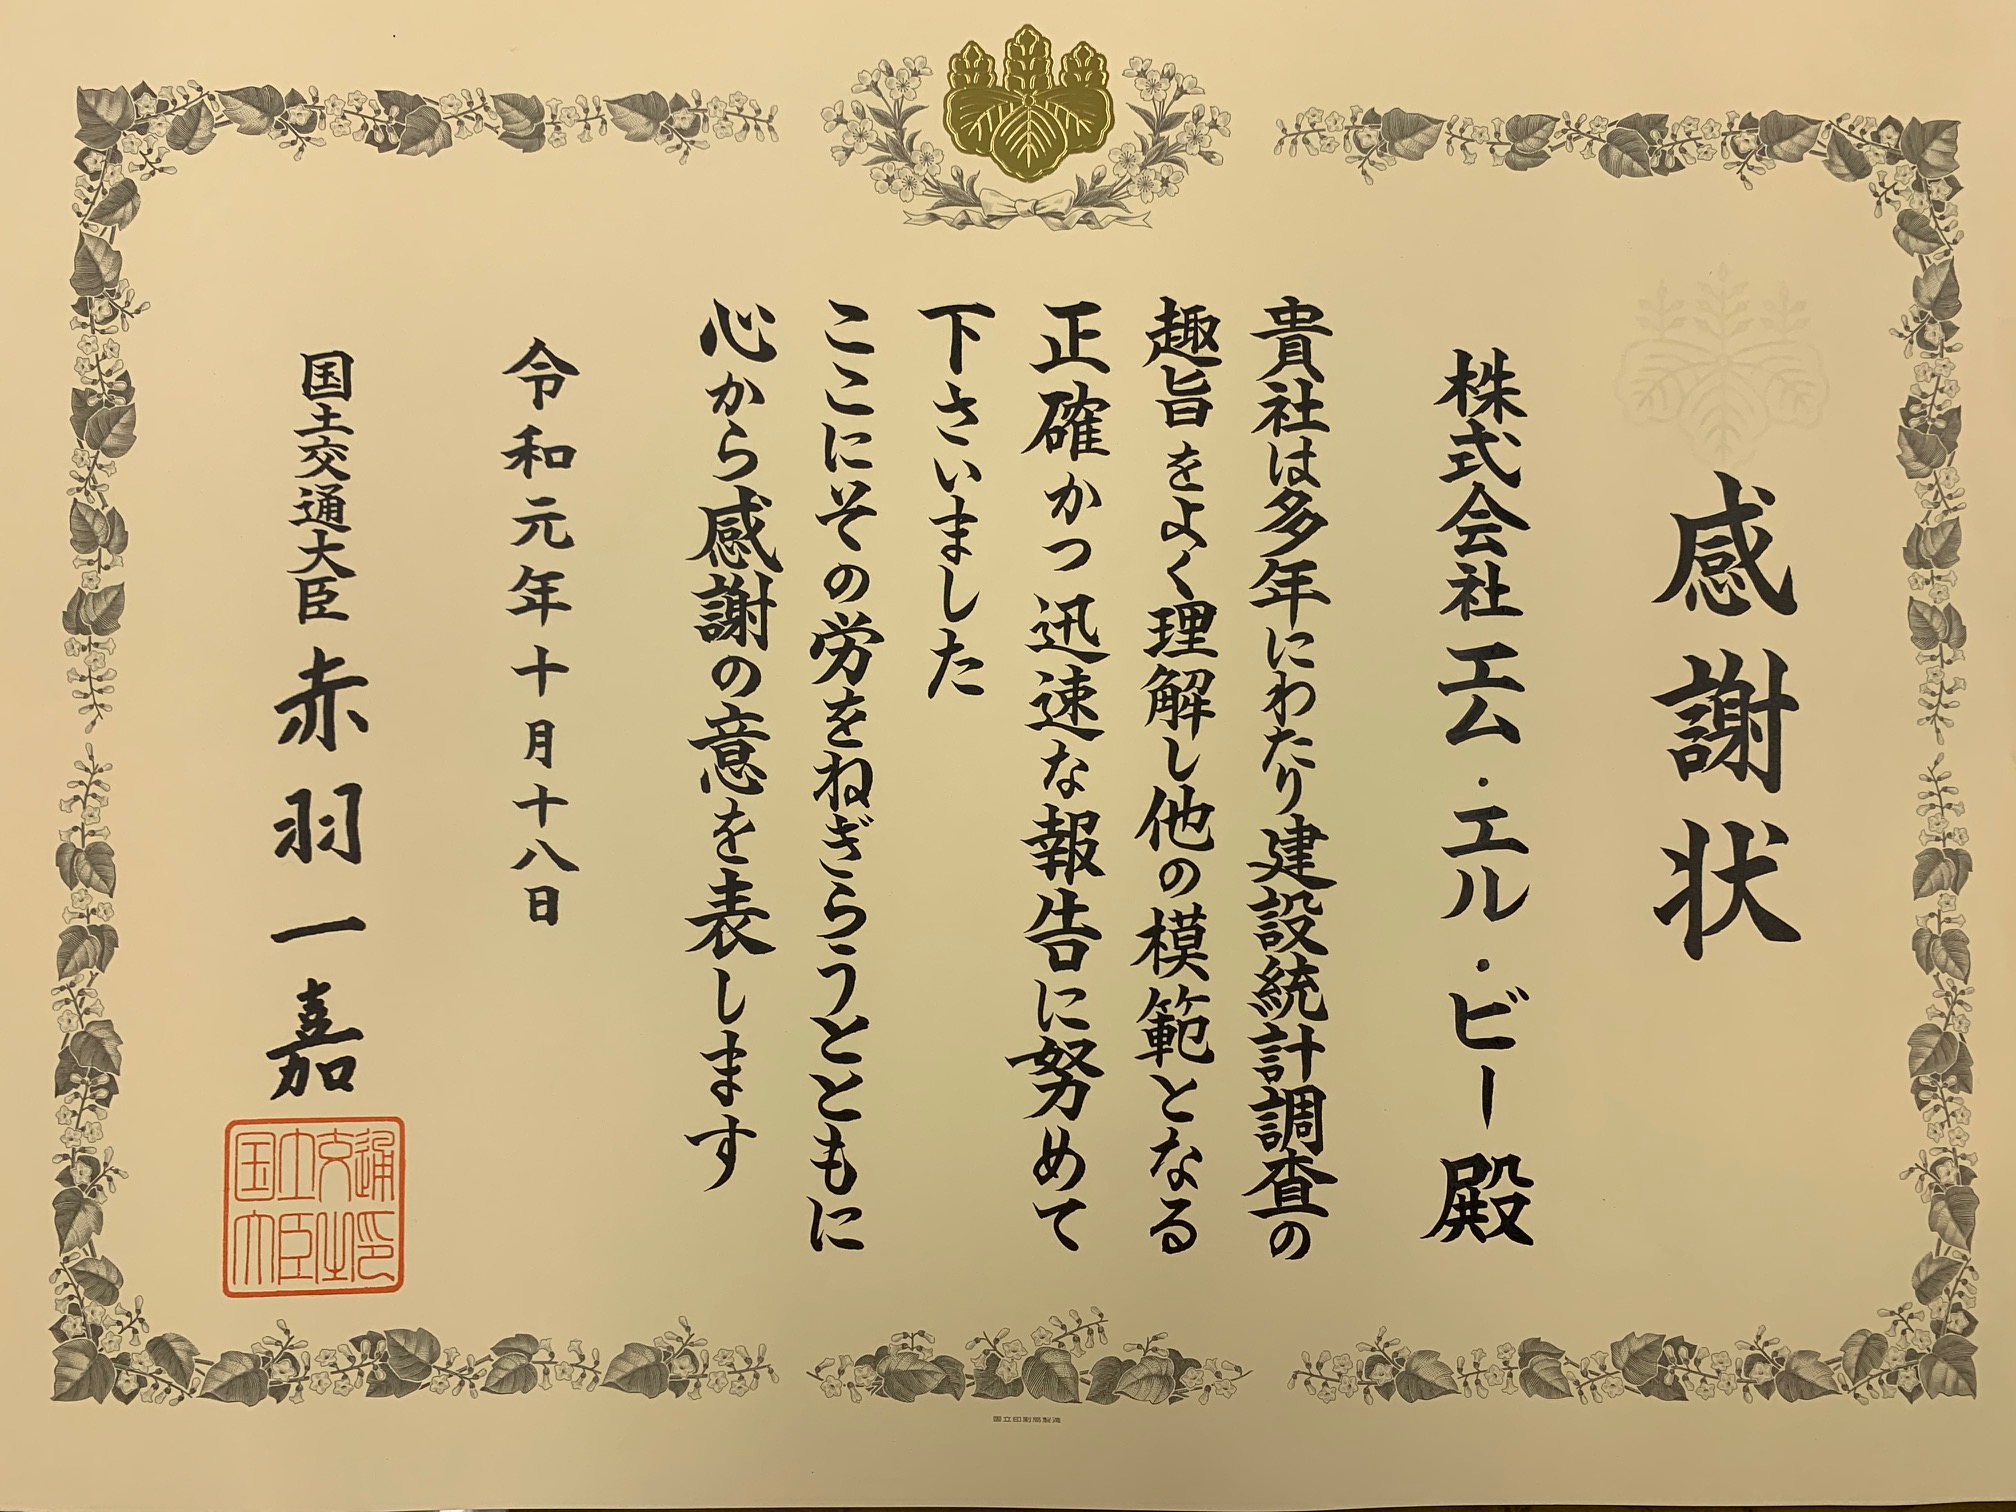 感謝状
株式会社エム・エル・ビー殿
貴社は多年にわたり建設統計調査の
趣旨をよく理解し他の模範となる
正確かつ迅速な報告に努めて
下さいました
ここにその労をねぎらうとともに
心から感謝の意を表します
令和元年十月十八日
国土交通大臣 赤羽一嘉
国土交通
大臣之印
国立印刷局製造